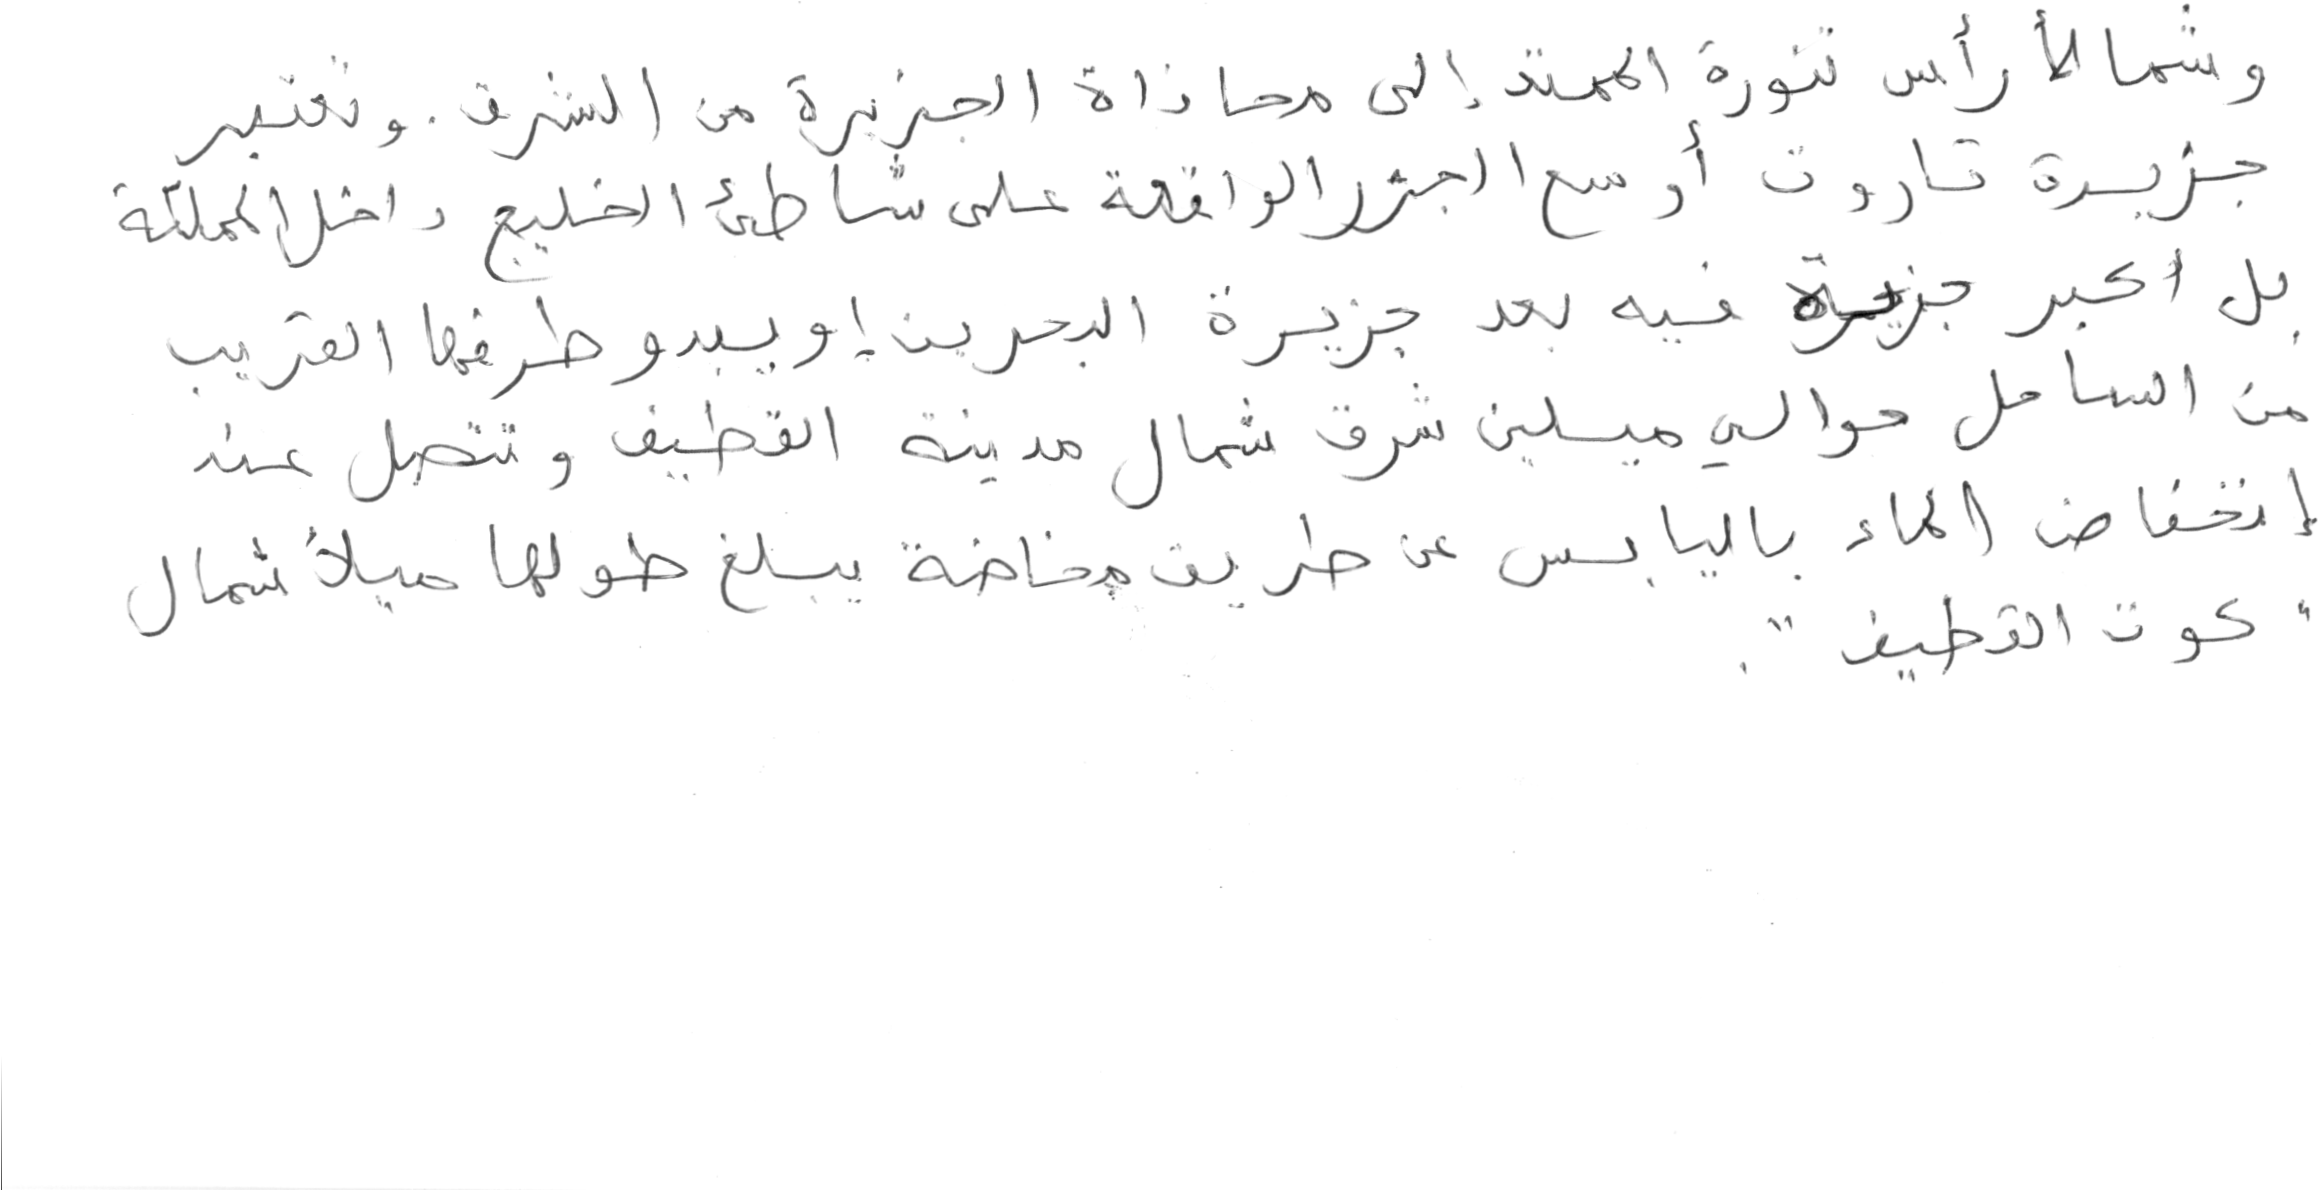 وشمالاً رأس تنورة الممتد إلى محاذاة الجزيرة من الشرق. وتعتبر
جزيرة تاروت أوسع الجزر الواقعة على شاطئ الخليج داخل المملكة
بل أكبر جزيرة فيه بعد جزيرة البحرين! ويبدو طرفها القريب
من الساحل حوالي ميلين شرق شمال مدينة القطيف وتتصل عند
إنخفاض الماء باليابس عن طريق مخاضة يبلغ طولها ميلاً شمال
"كوت القطيف".